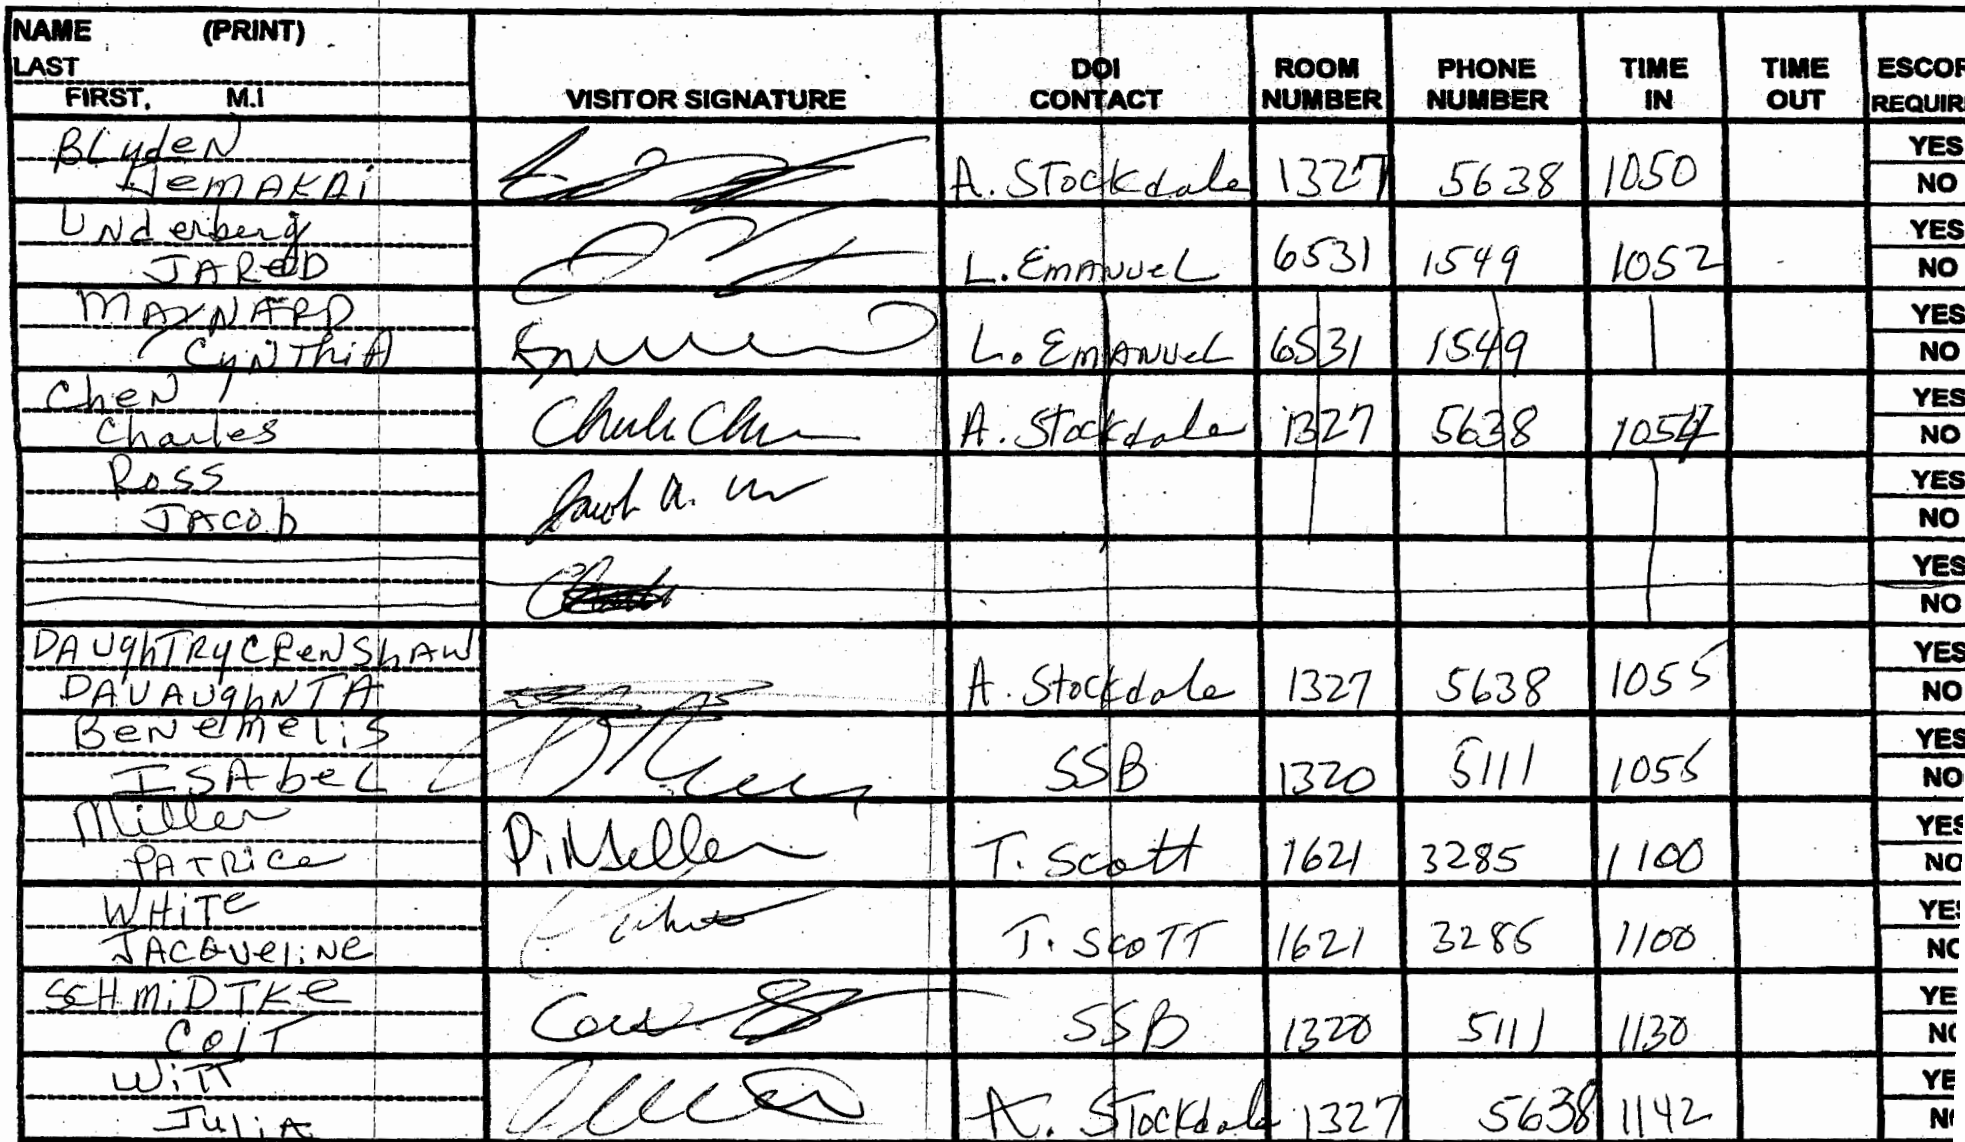 NAME (PRINT)
LAST
FIRST, M.I
VISITOR SIGNATURE
DOI CONTACT
ROOM NUMBER
PHONE NUMBER
TIME IN
TIME OUT
ESCOR
REQUIR
BLydeN
HemAKAi
A. STockdale 1327 5638 1050
YES
NO
UNderberg
JAReD
L. EmANueL 6531 1549 1052
YES
NO
MAYNARD
CyNThiA
L. EmANueL 6531 1549
YES
NO
CheN
Charles
Chen
A. Stockdale 1327 5638 1054
YES
NO
Ross
JAcob
YES
NO
YES
NO
DAUghTRyCRenShAW
DAVAUghNTA
A. Stockdale 1327 5638 1055
YES
NO
BeNemelis
ISAbeL
SSB 1320 5111 1055
YES
NO
Miller
PATRice
P. Miller
T. Scott 1621 3285 1100
YES
NO
WHiTe
JACQueliNe
T. ScoTT 1621 3285 1100
YES
NO
SCHmiDTKe
ColT
SSB 1320 5111 1130
YE
NO
WiTT
JuliA
A. STockdale 1327 5638 1142
YE
NO